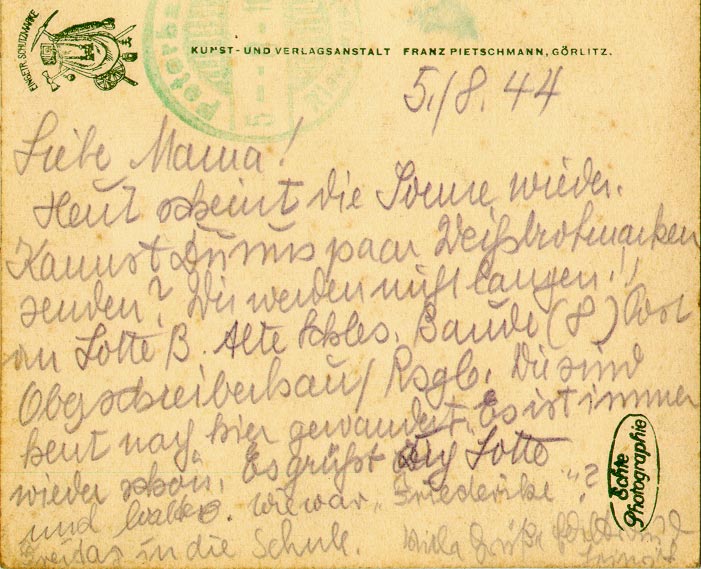 EINGETR. SCHUTZMARKE
KUNST- UND VERLAGSANSTALT FRANZ PIETSCHMANN, GÖRLITZ.
5./8.44
Liebe Mama!
Heut scheint die Sonne wieder.
Kannst Du uns paar Weißbrotmarken
senden? Wir werden nicht langen!!
an Lotte B. Alte Schles. Baude (8) Post
Oberschreiberhau/Rsgb.
heut nach hier gewandert. Es ist immer
wieder schön. Es grüßt Dich Lotte
und Walter. Wie war "Friederike"?
Freitag in die Schule. Viele Grüße
Echte
Photographie